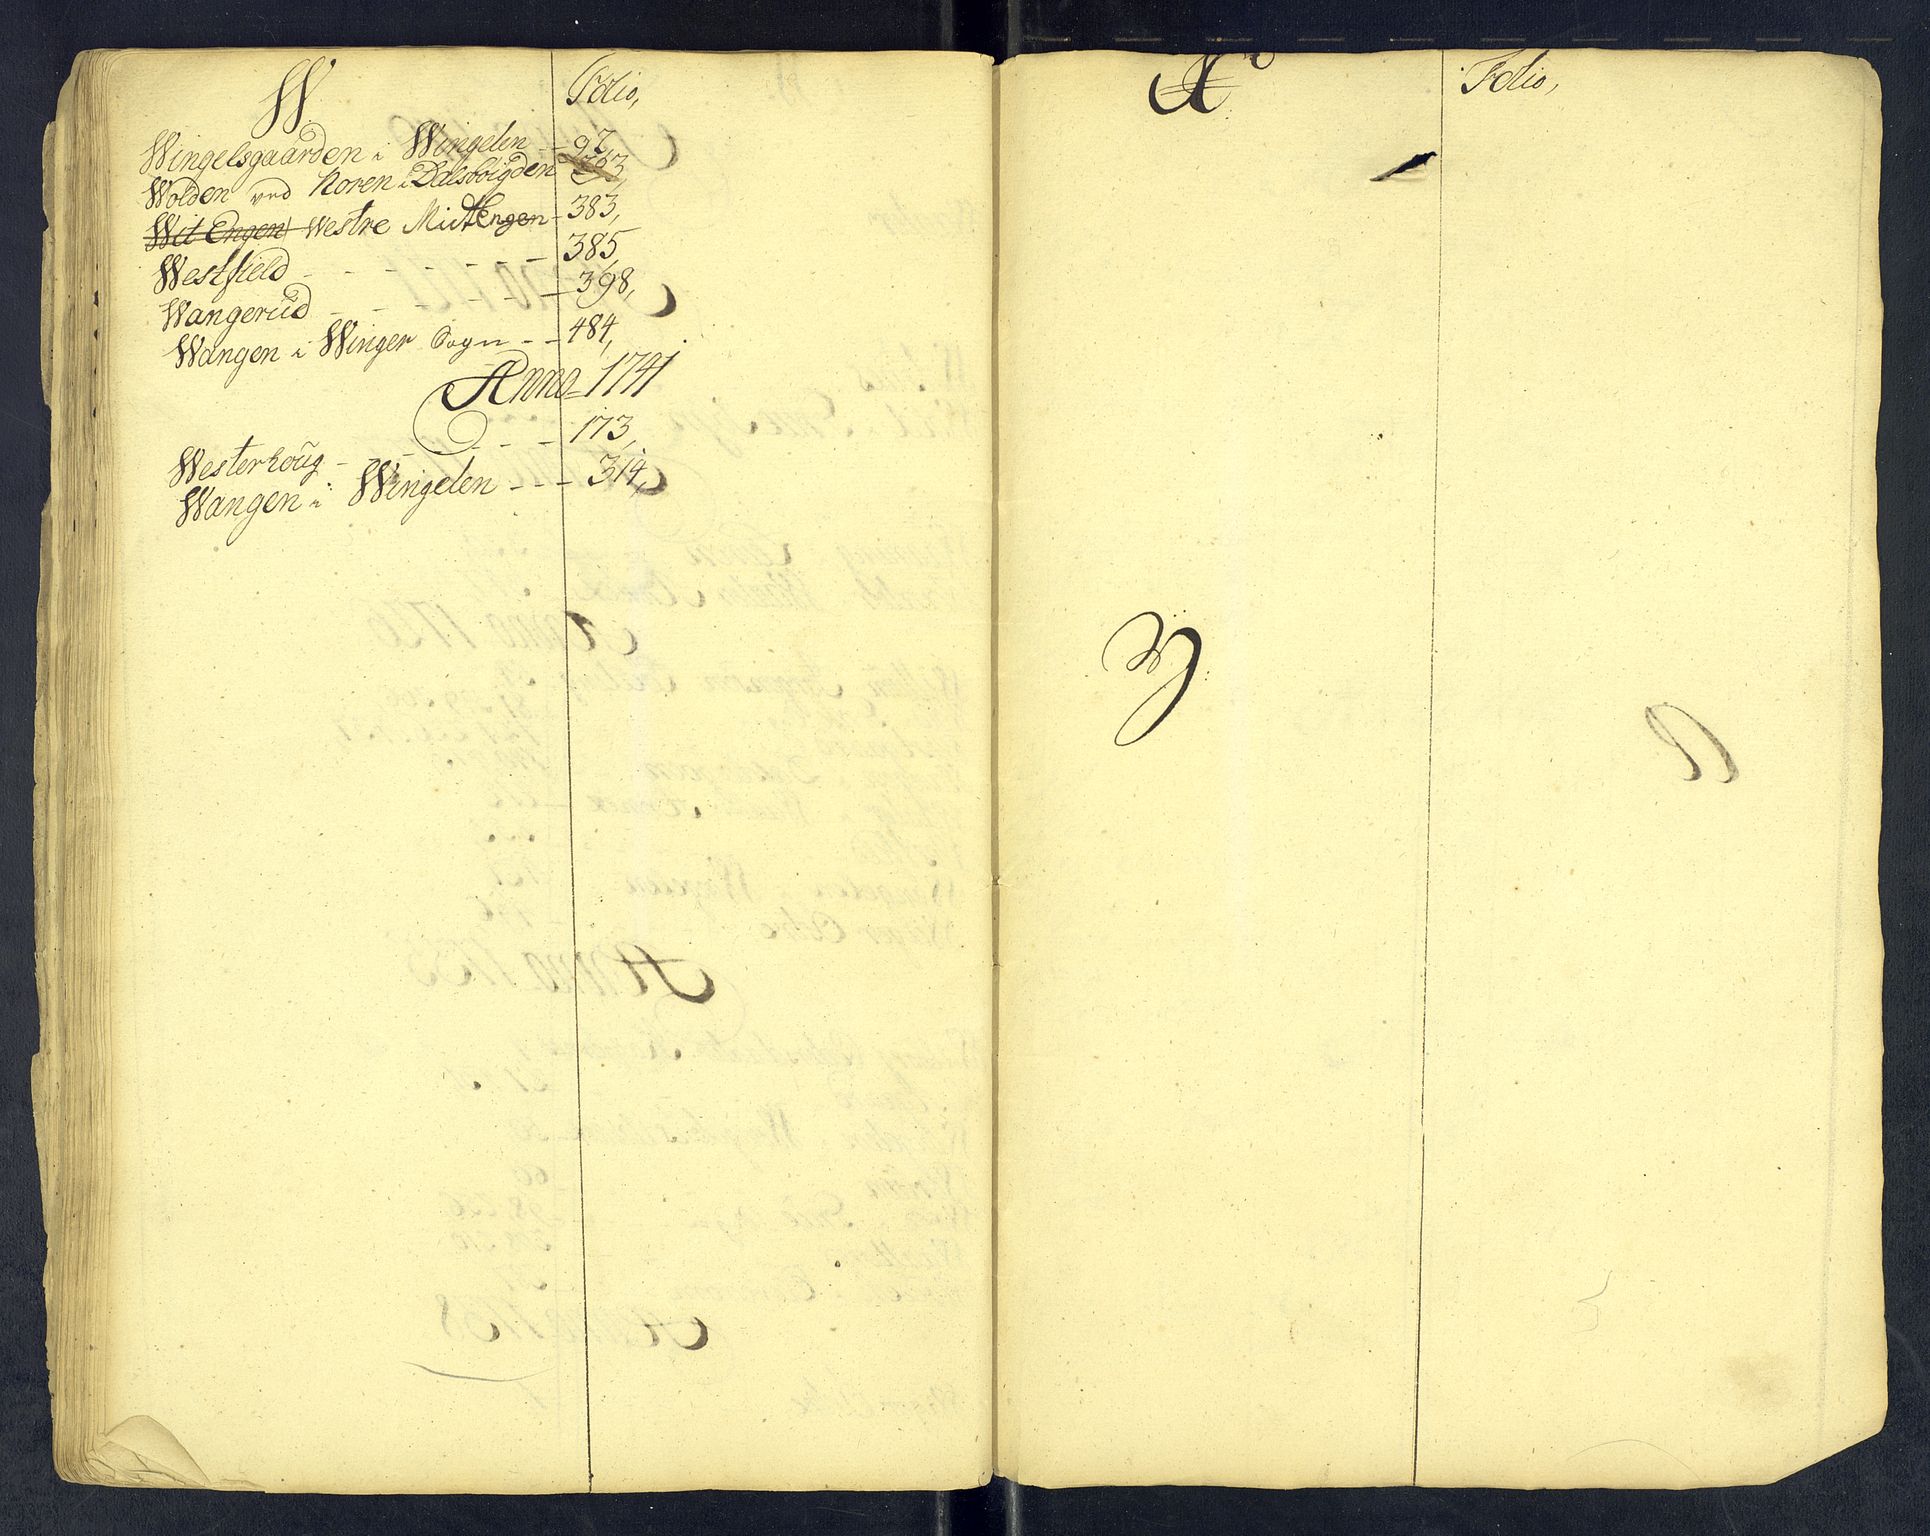 W. Folio,
Wingelsgaarden i Wingelen - - 97,
Wolden ved Noren i Dalsbøigden 353,
Wit Engen Westre Mictengen - 383,
Westfield - - - - - - - 385,
Wangerud - - - - - - 398,
Wangen i Winger Sogn - - 484,
Anno 1741
Westerhoug - - - - - 173,
Wangen i Wingelen - - - 314,
X Folio,
Y